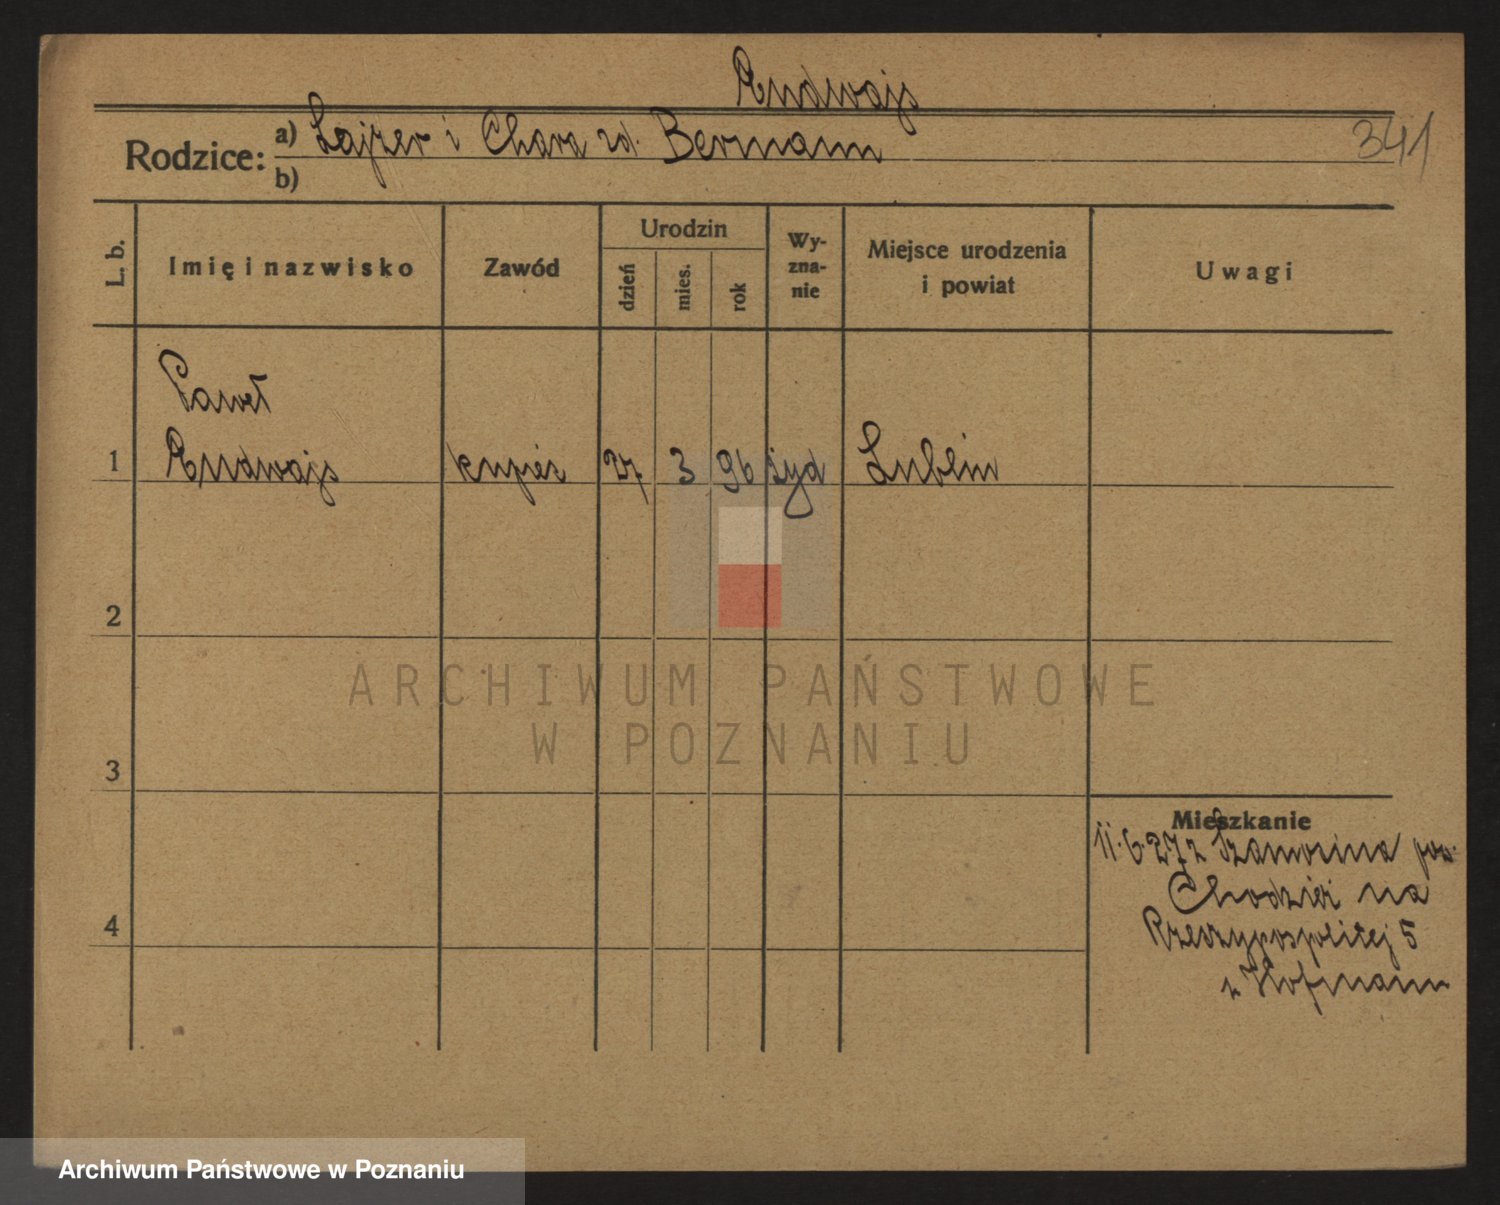 Rudwajs
Rodzice: a) Lajzer i Chava zd. Bermann
341
b)
L. b.
Imię i nazwisko
Zawód
Urodzin
dzień
mies.
rok
Wy-
zna-
nie
Miejsce urodzenia
i powiat
Uwagi
Paweł
1 Rudwajs kupiec 27 3 96 żyd Lublin
2
ARCHIWUM PAŃSTWOWE
W POZNANIU
3
Mieszkanie
11.6.27 z Szamocina pow.
Chodzież na
4
Rzeczypospolitej 5
z Hofmann
Archiwum Państwowe w Poznaniu